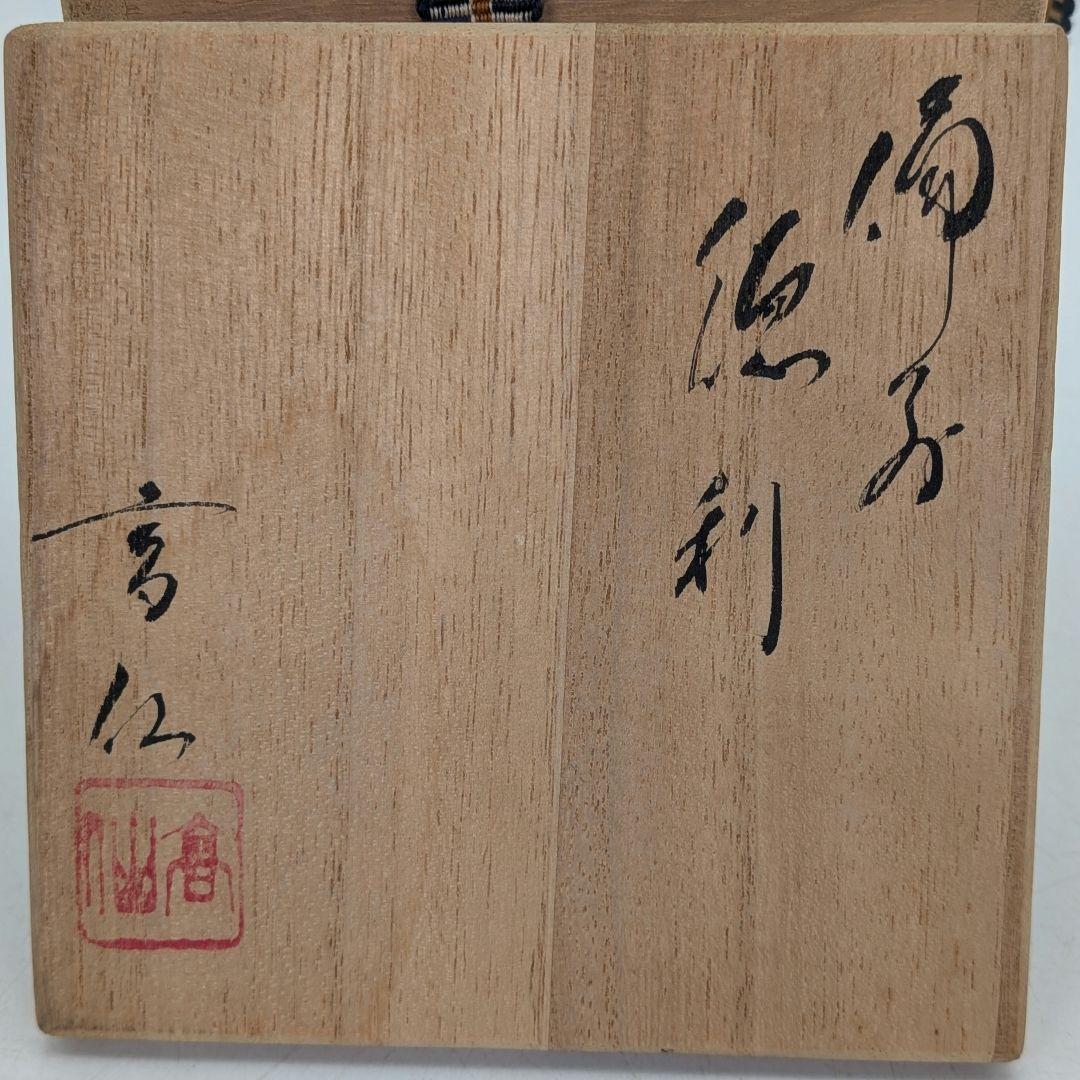 備前
徳利
高仙
高仙